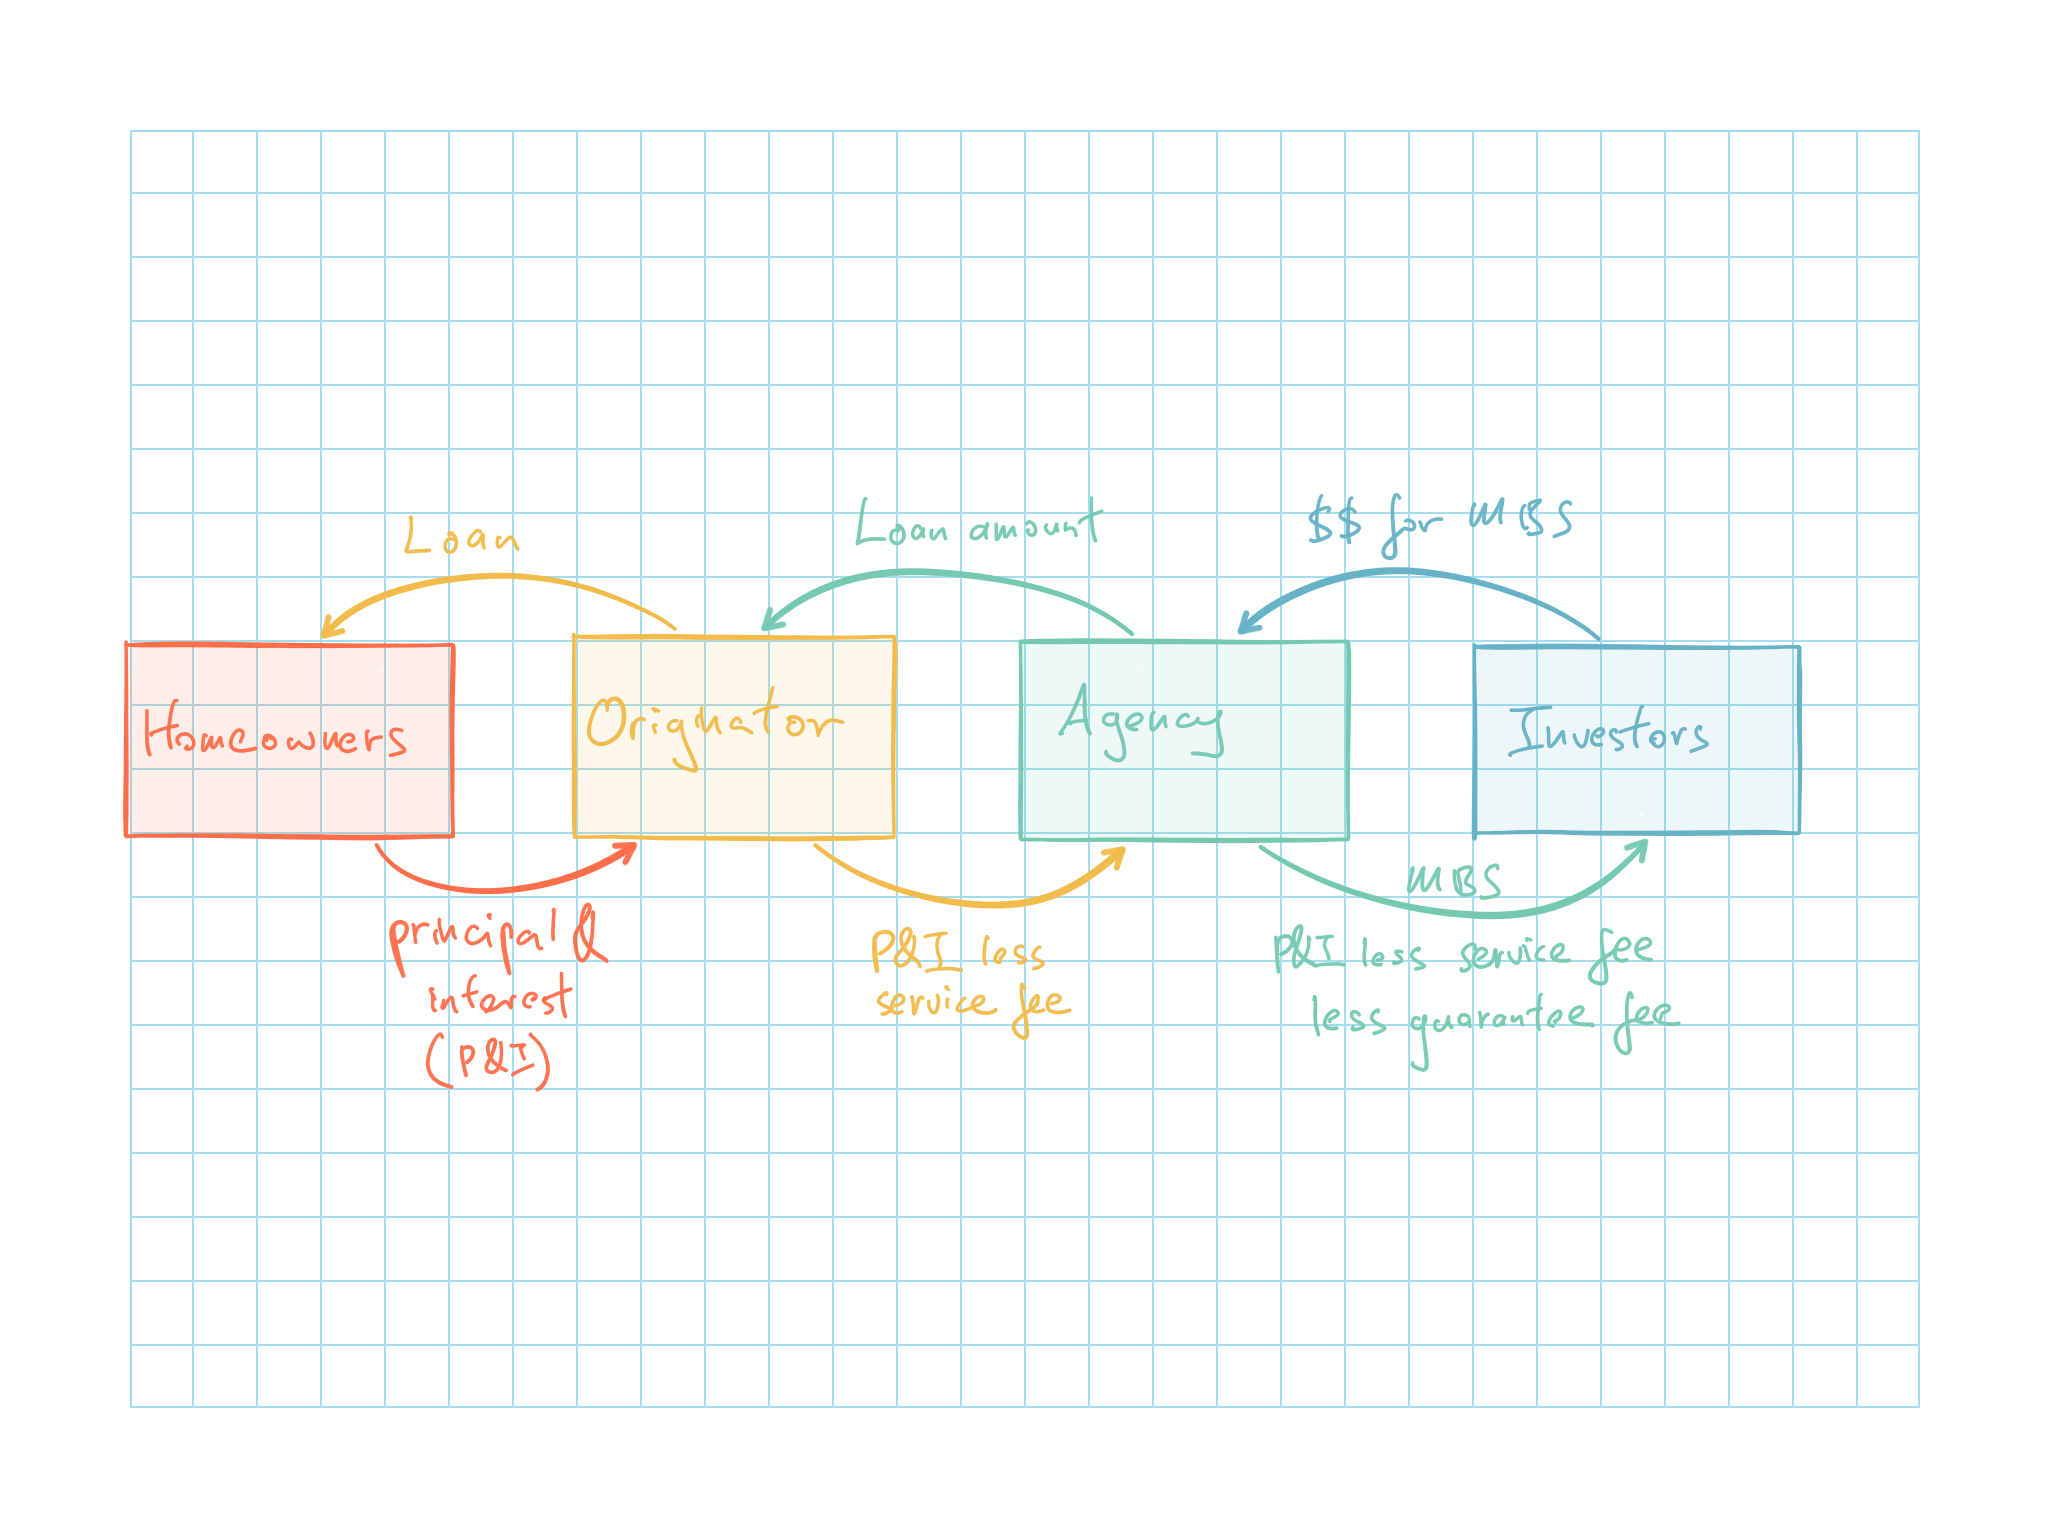 Loan
Loan amount
$$ for MBS
Homeowners
Originator
Agency
Investors
MBS
principal &
interest
(P&I)
P&I less
service fee
P&I less service fee
less guarantee fee